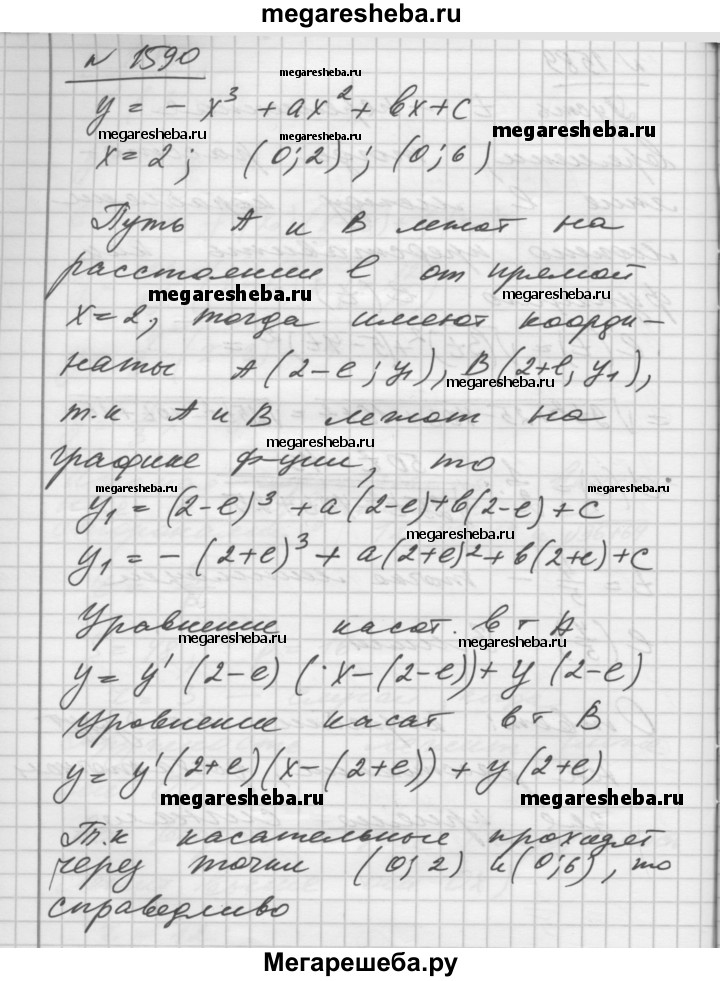 megaresheba.ru
N 1590
megaresheba.ru
y = - x³ + ax² + bx + c
megaresheba.ru megaresheba.ru megaresheba.ru
x = 2; (0; 2); (0; 6)
Путь A и B лежат на
расстоянии l от прямой
megaresheba.ru megaresheba.ru
x=2, тогда имеют коорди-
наты A(2-e; y₁), B(2+e, y₁),
megaresheba.ru
т.к A и B лежат на
megaresheba.ru
графике ф-ции, то
megaresheba.ru megaresheba.ru
y₁ = (2-e)³ + a(2-e)+b(2-e)+c
megaresheba.ru
y₁ = - (2+e)³ + a(2+e)²+b(2+e)+c
Уравнение касат. в т A
megaresheba.ru megaresheba.ru
y = y' (2-e) (·x-(2-e))+ y (2-e)
уровнение касат в т B
y= y'(2+e)(x-(2+e)) + y(2+e)
megaresheba.ru megaresheba.ru
Т.к касательные проходят
через точки (0; 2) и (0; 6), то
справедливо
Мегарешеба.ру